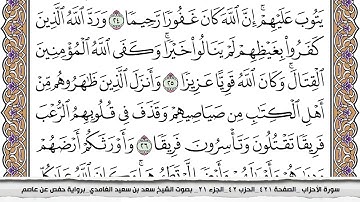 يَتُوبَ عَلَيْهِمْ ۚ إِنَّ ٱللَّهَ كَانَ غَفُورًا رَّحِيمًا ٢٤ وَرَدَّ ٱللَّهُ ٱلَّذِينَ
كَفَرُوا۟ بِغَيْظِهِمْ لَمْ يَنَالُوا۟ خَيْرًا ۚ وَكَفَى ٱللَّهُ ٱلْمُؤْمِنِينَ
ٱلْقِتَالَ ۚ وَكَانَ ٱللَّهُ قَوِيًّا عَزِيزًا ٢٥ وَأَنزَلَ ٱلَّذِينَ ظَٰهَرُوهُم مِّنْ
أَهْلِ ٱلْكِتَٰبِ مِن صَيَاصِيهِمْ وَقَذَفَ فِى قُلُوبِهِمُ ٱلرُّعْبَ
فَرِيقًا تَقْتُلُونَ وَتَأْسِرُونَ فَرِيقًا ٢٦ وَأَوْرَثَكُمْ أَرْضَهُمْ
سورة الأحزاب _الصفحة ٤٢١_ الحزب ٤٢_ الجزء ٢١_ بصوت الشيخ سعد بن سعيد الغامدي_ برواية حفص عن عاصم